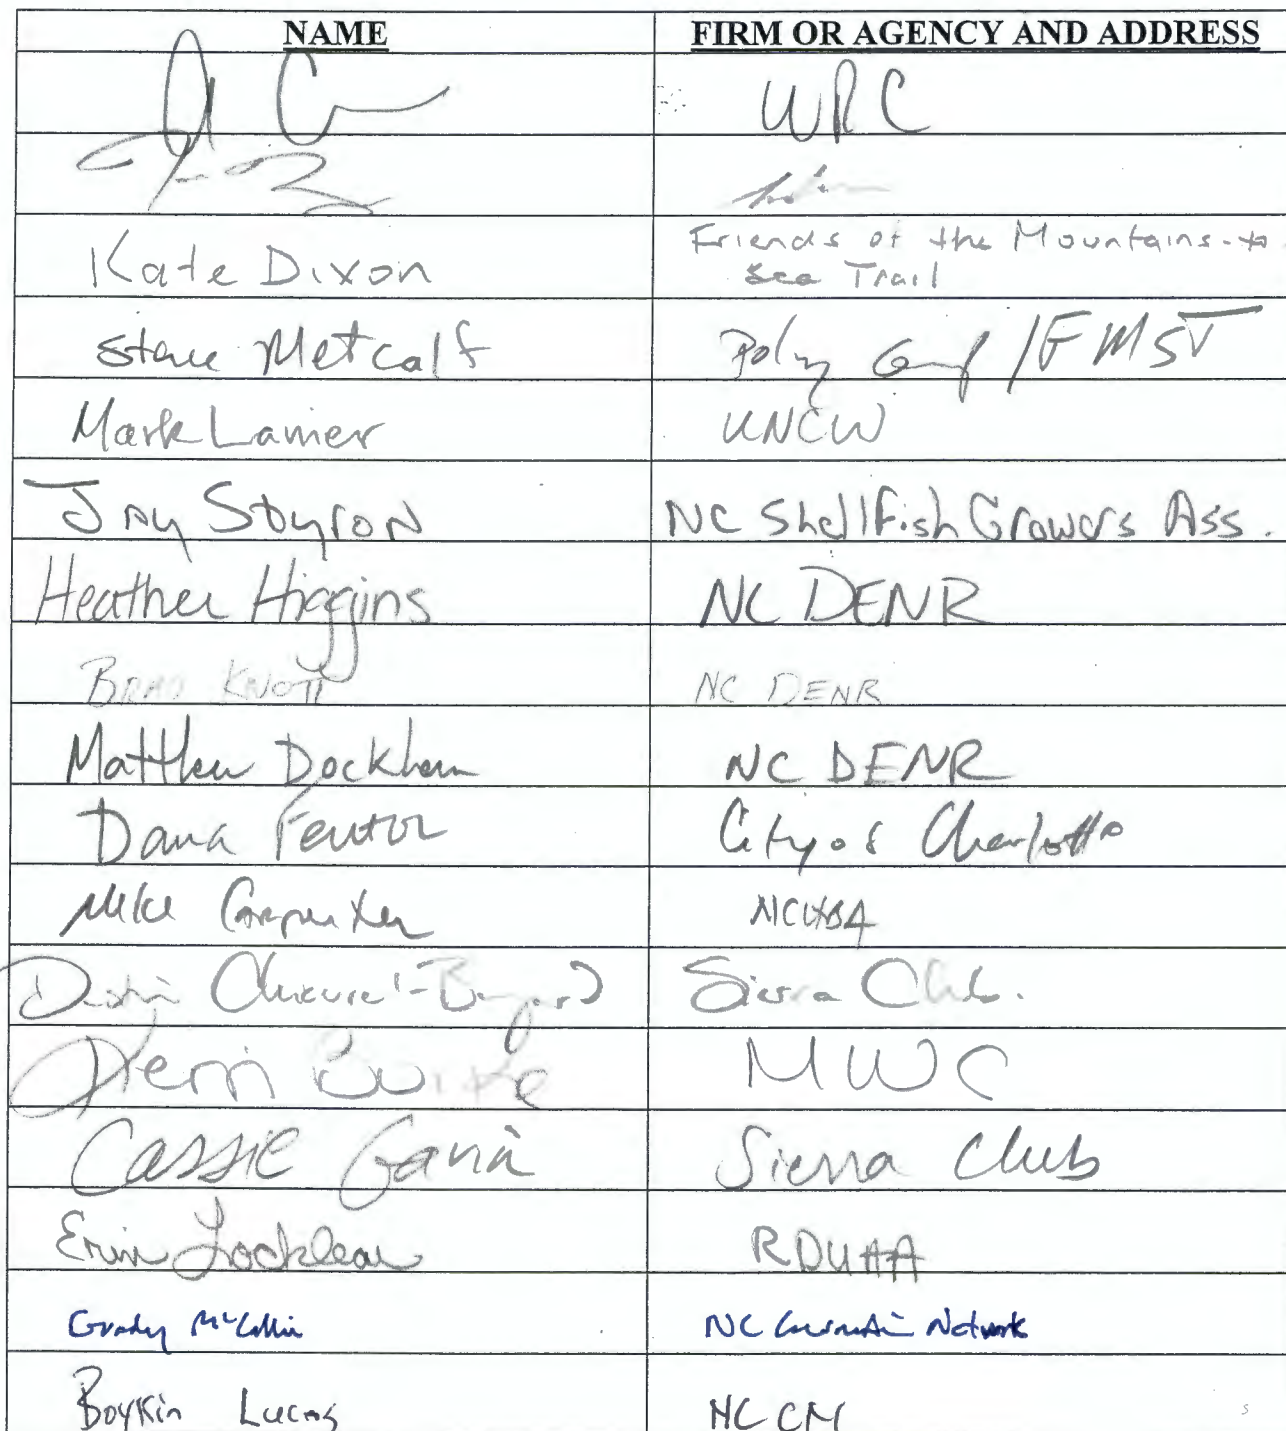 NAME FIRM OR AGENCY AND ADDRESS
WRC
Kate Dixon Friends of the Mountains-to
Sea Trail
Steve Metcalf Policy Group / FMST
Mark Lanier UNCW
Jay Styron NC Shellfish Growers Ass.
Heather Higgins NC DENR
BRAD KNOTT NC DENR
Matthew Dockham NC DENR
Dana Fenton City of Charlotte
Mike Carpenter NCHBA
Dustin Chicurel-Bayard Sierra Club.
Kerri Burke MWC
Cassie Gavin Sierra Club
Erin Locklear RDUAA
Grady McCallie NC Conservation Network
Boykin Lucas NC CM